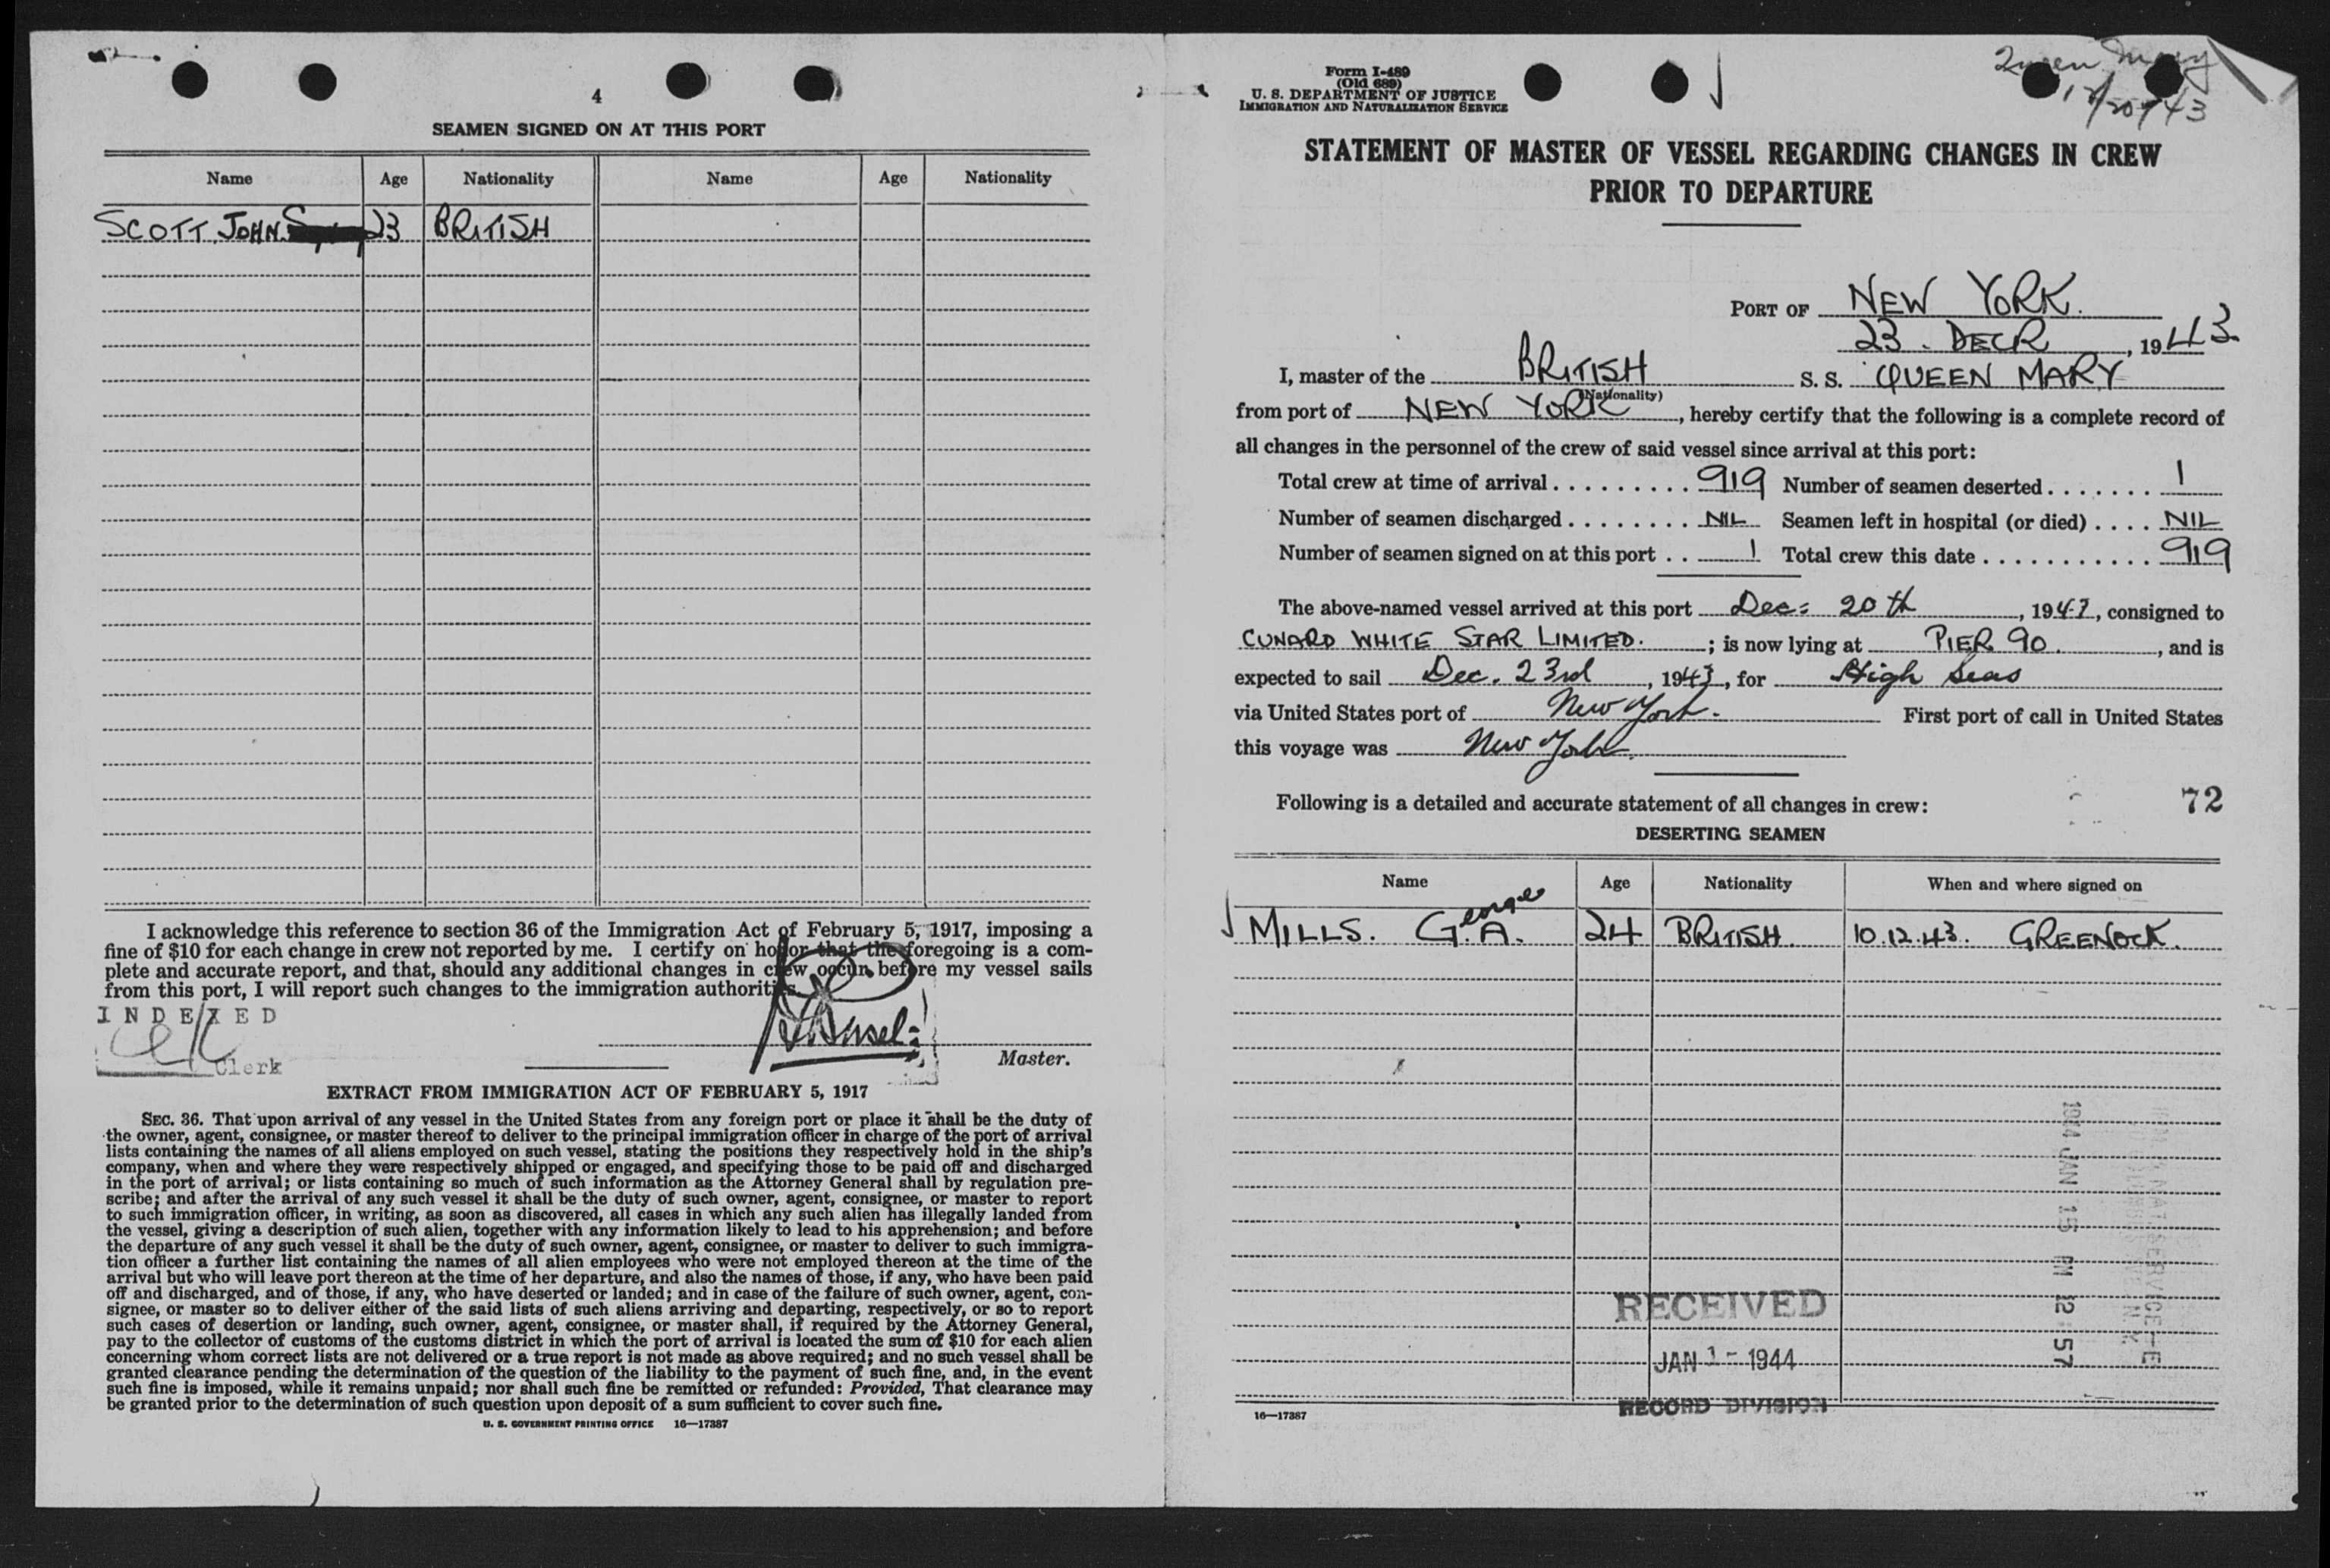 4
SEAMEN SIGNED ON AT THIS PORT
Name Age Nationality Name Age Nationality
SCOTT. JOHN. 23 BRITISH
I acknowledge this reference to section 36 of the Immigration Act of February 5, 1917, imposing a
fine of $10 for each change in crew not reported by me. I certify on honor that the foregoing is a com-
plete and accurate report, and that, should any additional changes in crew occur before my vessel sails
from this port, I will report such changes to the immigration authorities.
INDEXED
Clerk
Master.
EXTRACT FROM IMMIGRATION ACT OF FEBRUARY 5, 1917
SEC. 36. That upon arrival of any vessel in the United States from any foreign port or place it shall be the duty of
the owner, agent, consignee, or master thereof to deliver to the principal immigration officer in charge of the port of arrival
lists containing the names of all aliens employed on such vessel, stating the positions they respectively hold in the ship's
company, when and where they were respectively shipped or engaged, and specifying those to be paid off and discharged
in the port of arrival; or lists containing so much of such information as the Attorney General shall by regulation pre-
scribe; and after the arrival of any such vessel it shall be the duty of such owner, agent, consignee, or master to report
to such immigration officer, in writing, as soon as discovered, all cases in which any such alien has illegally landed from
the vessel, giving a description of such alien, together with any information likely to lead to his apprehension; and before
the departure of any such vessel it shall be the duty of such owner, agent, consignee, or master to deliver to such immigra-
tion officer a further list containing the names of all alien employees who were not employed thereon at the time of the
arrival but who will leave port thereon at the time of her departure, and also the names of those, if any, who have been paid
off and discharged, and of those, if any, who have deserted or landed; and in case of the failure of such owner, agent, con-
signee, or master so to deliver either of the said lists of such aliens arriving and departing, respectively, or so to report
such cases of desertion or landing, such owner, agent, consignee, or master shall, if required by the Attorney General,
pay to the collector of customs of the customs district in which the port of arrival is located the sum of $10 for each alien
concerning whom correct lists are not delivered or a true report is not made as above required; and no such vessel shall be
granted clearance pending the determination of the question of the liability to the payment of such fine, and, in the event
such fine is imposed, while it remains unpaid; nor shall such fine be remitted or refunded: Provided, That clearance may
be granted prior to the determination of such question upon deposit of a sum sufficient to cover such fine.
U. S. GOVERNMENT PRINTING OFFICE 16—17387
Form I-489
(Old 689)
U. S. DEPARTMENT OF JUSTICE
IMMIGRATION AND NATURALIZATION SERVICE
Queen Mary
12/20/43
STATEMENT OF MASTER OF VESSEL REGARDING CHANGES IN CREW
PRIOR TO DEPARTURE
PORT OF NEW YORK.
23. DECR, 1943
I, master of the BRITISH S. S. QUEEN MARY
(Nationality)
from port of NEW YORK, hereby certify that the following is a complete record of
all changes in the personnel of the crew of said vessel since arrival at this port:
Total crew at time of arrival ......... 919 Number of seamen deserted ....... 1
Number of seamen discharged ........ NIL Seamen left in hospital (or died) .... NIL
Number of seamen signed on at this port .. 1 Total crew this date ............ 919
The above-named vessel arrived at this port Dec: 20th, 1943, consigned to
CUNARD WHITE STAR LIMITED. ; is now lying at PIER 90., and is
expected to sail Dec. 23rd, 1943, for High Seas
via United States port of New York. First port of call in United States
this voyage was New York.
Following is a detailed and accurate statement of all changes in crew:
72
DESERTING SEAMEN
Name Age Nationality When and where signed on
George
MILLS. G. A. 24 BRITISH. 10.12.43. GREENOCK.
1944 JAN 15 PM 12:57
RECEIVED
JAN 1 - 1944
RECORD DIVISION
16—17387